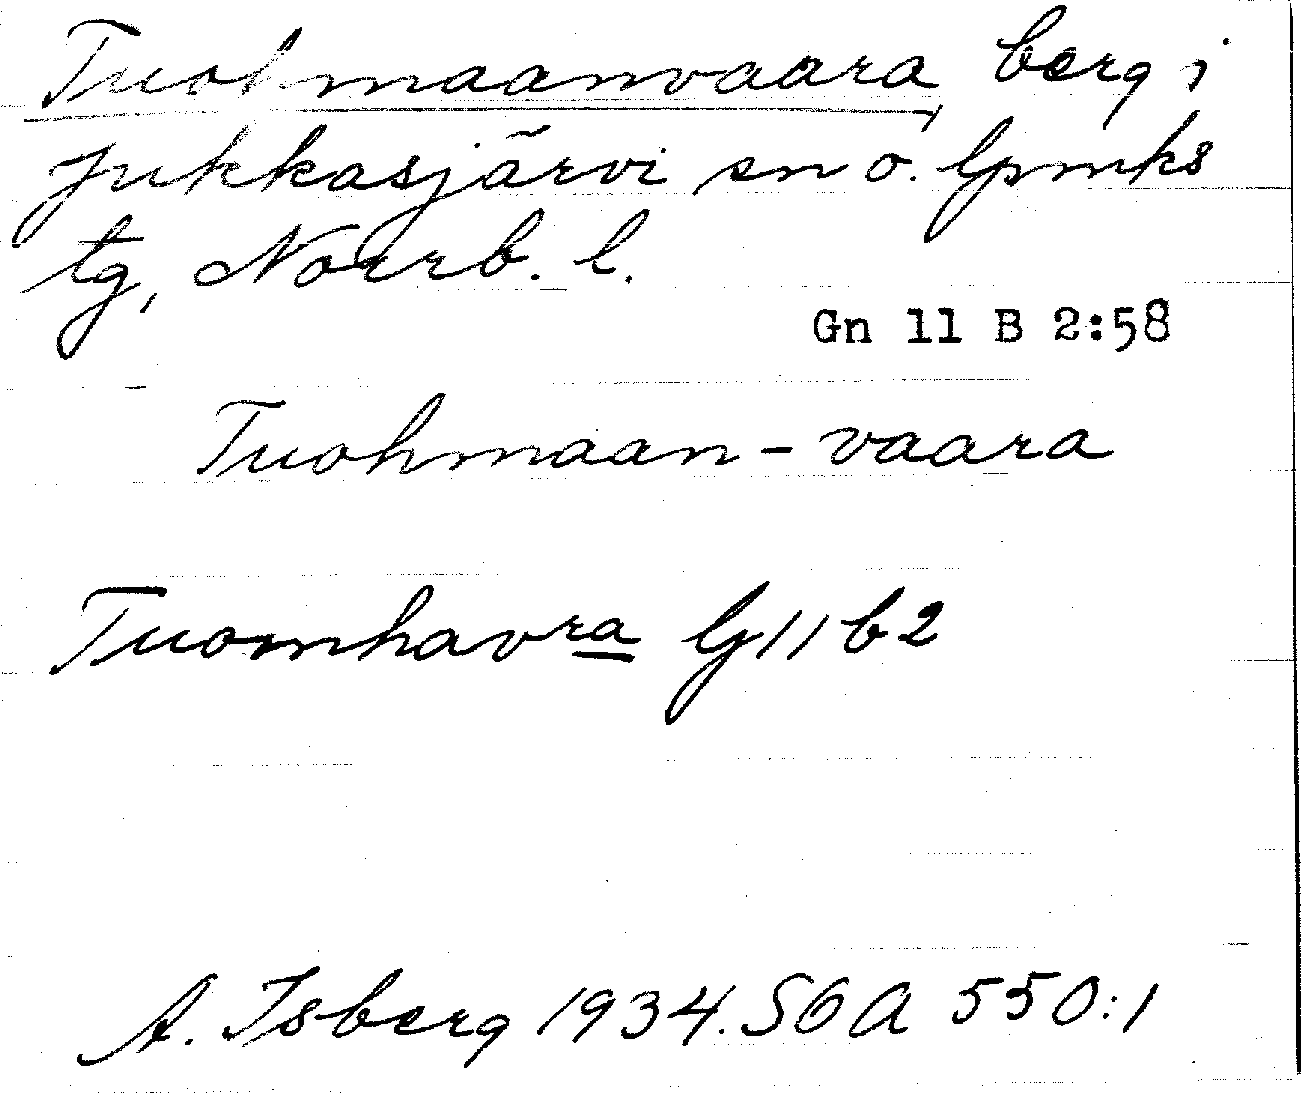 Tuohmaanvaara, berg i
Jukkasjärvi sn o. lpmks
tg, Norrb. l.
Gn 11 B 2:58
Tuohmaan-vaara
Tuomhavra G11b2
A. Isberg 1934. SOA 550:1